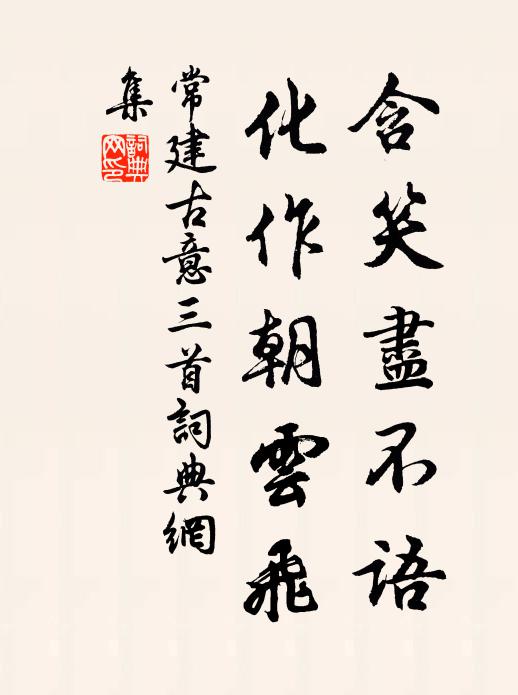 含笑盡不語
化作朝雲飛
常建古意三首詞典網
集
詞典
网印